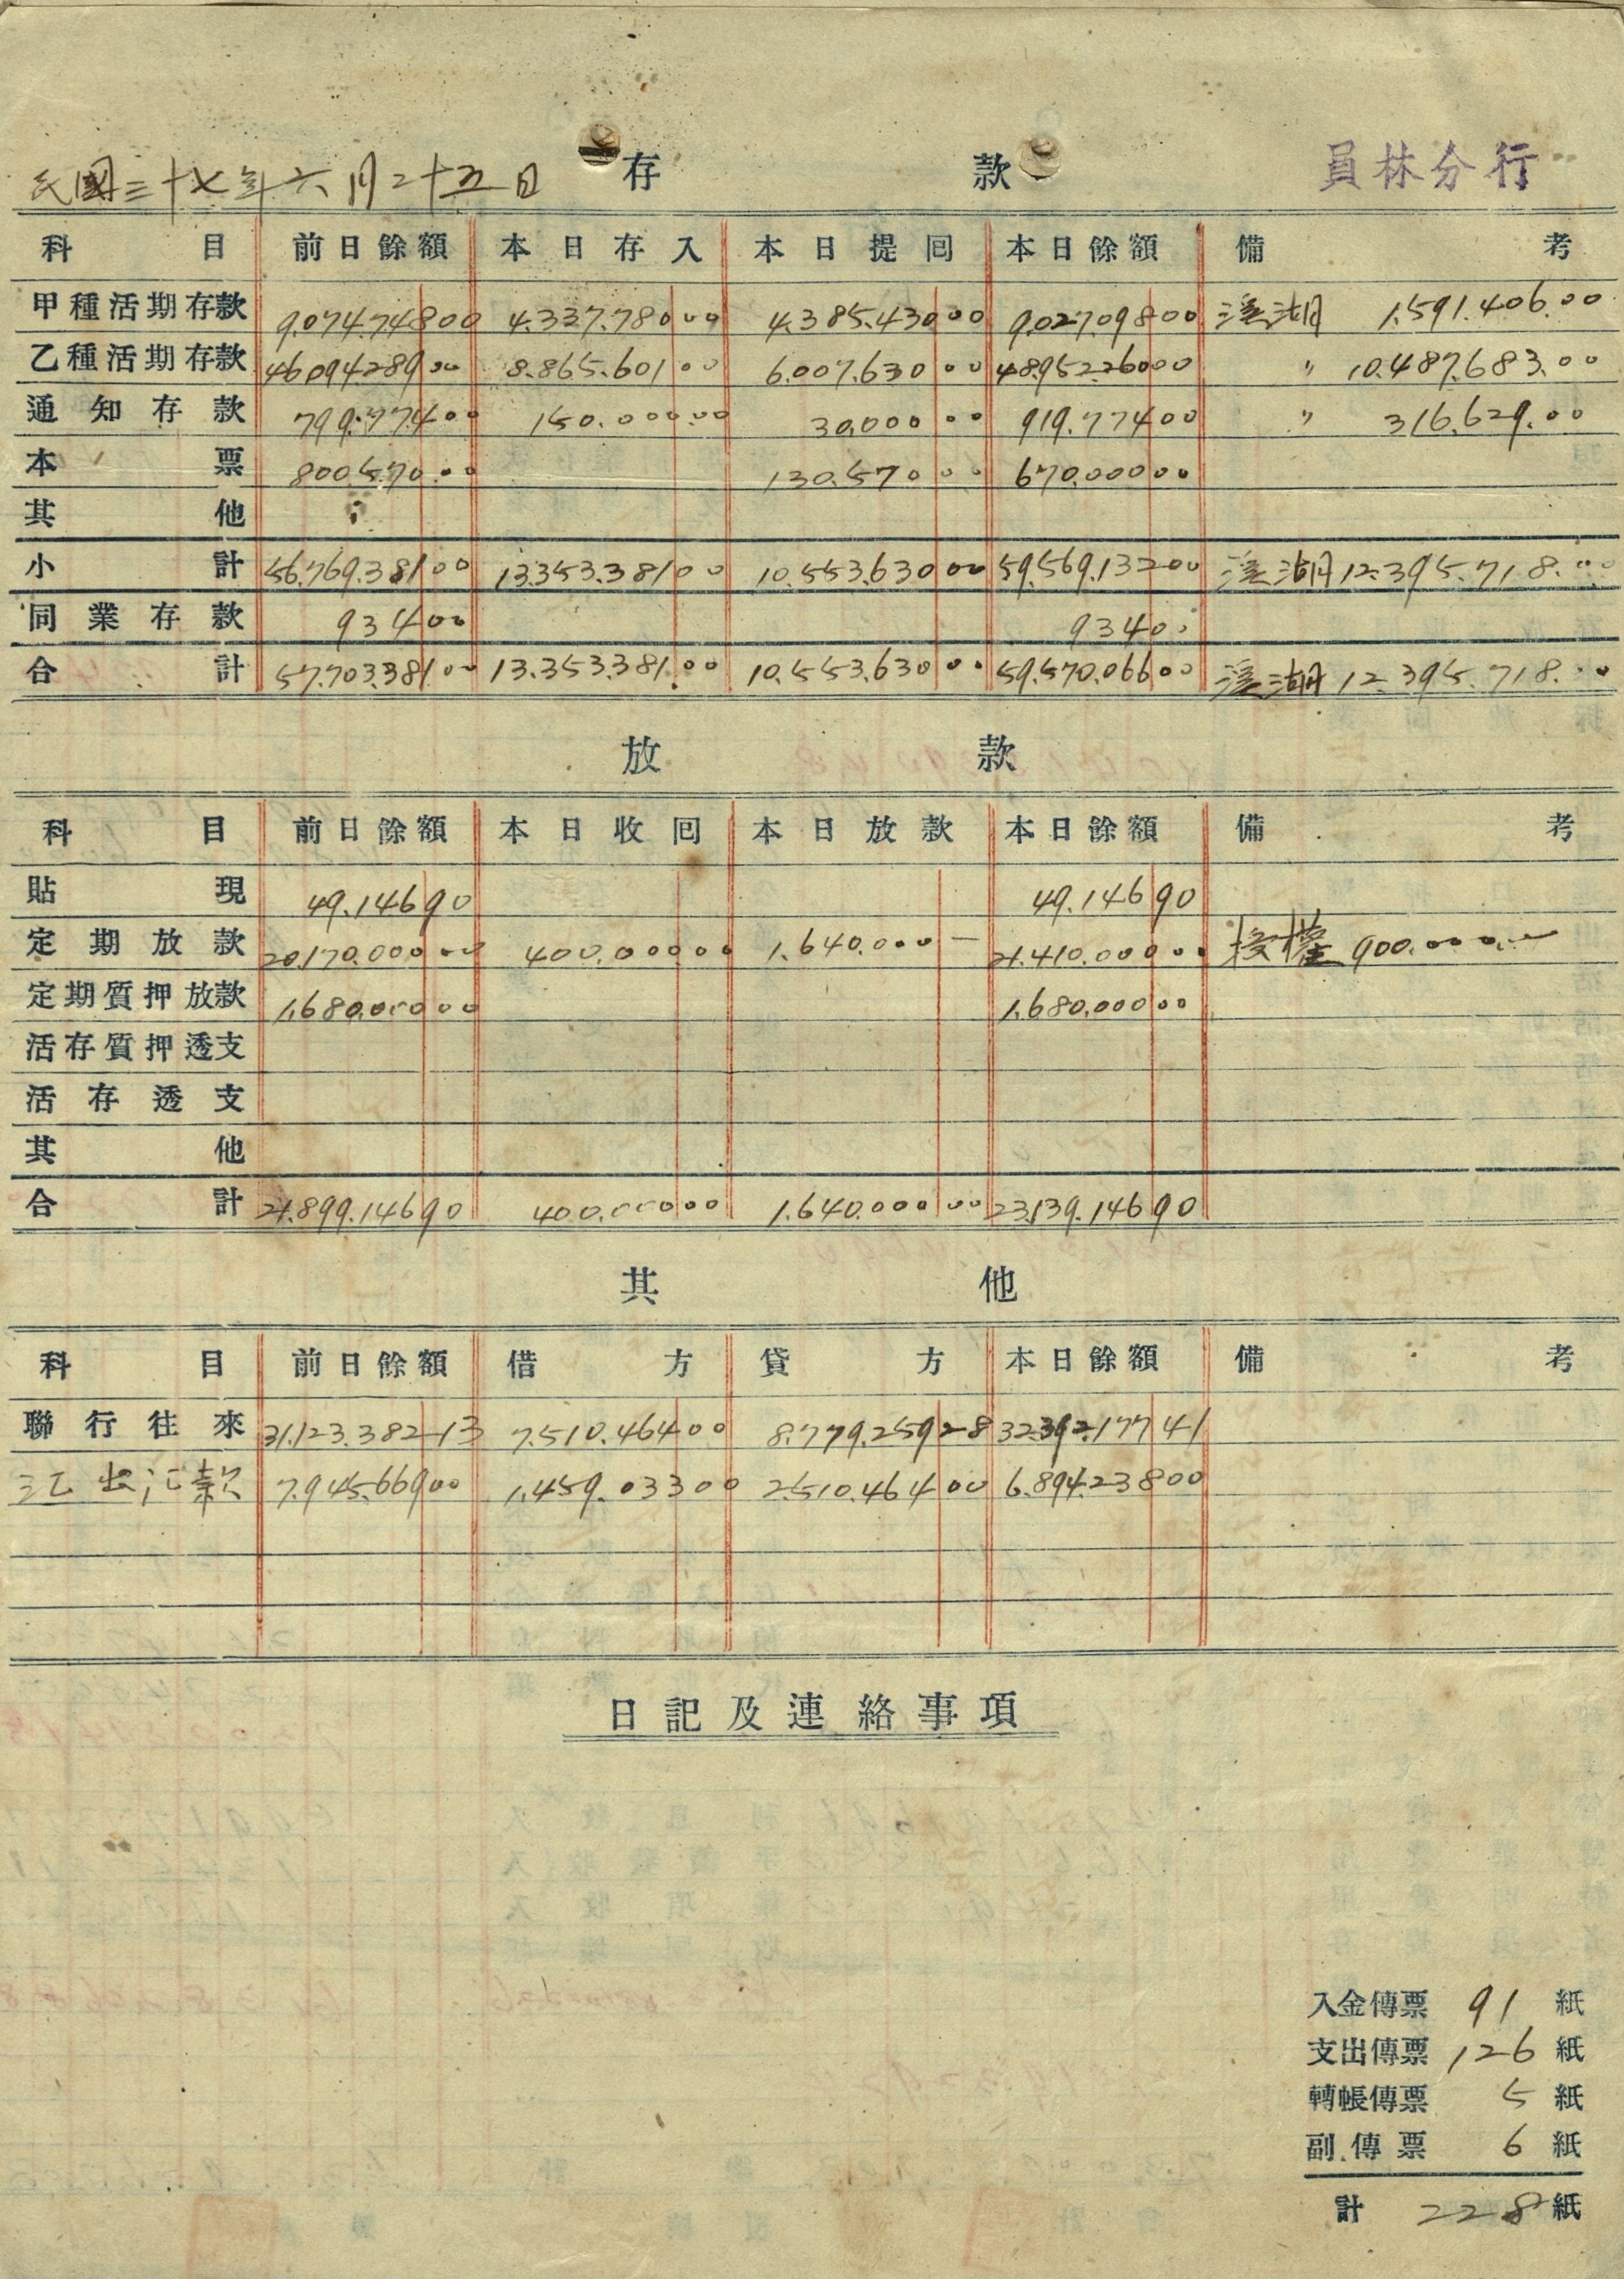 民國三十七年六月二十五日 存款 員林分行
科目 前日餘額 本日存入 本日提囘 本日餘額 備考
甲種活期存款 9.074.748 00 4.337.780 00 4.385.430 00 9.027.098 00 溪湖 1.591.406.00
乙種活期存款 46.094.289 00 8.865.601 00 6.007.630 00 48.952.260 00 〃 10.487.683.00
通知存款 799.774 00 150.000 00 30.000 00 919.774 00 〃 316.629.00
本票 800.570.00 130.570 00 670.000 00
其他
小計 56.769.381 00 13.353.381 00 10.553.630 00 59.569.132 00 溪湖 12.395.718.00
同業存款 934 00 934 00
合計 57.703.381.00 13.353.381.00 10.553.630 00 59.570.066 00 溪湖 12.395.718.00
放款
科目 前日餘額 本日收囘 本日放款 本日餘額 備考
貼現 49.146 90 49.146 90
定期放款 20.170.000 00 400.000 00 1.640.000 — 21.410.000 00 授權 900.000.00
定期質押放款 1.680.000 00 1.680.000 00
活存質押透支
活存透支
其他
合計 21.899.146 90 400.000 00 1.640.000 00 23.139.146 90
其他
科目 前日餘額 借方 貸方 本日餘額 備考
聯行往來 31.123.382 13 7.510.464 00 8.779.259 28 32.392.177 41
汇出汇款 7.945.669 00 1.459.033 00 2.510.464 00 6.894.238 00
日記及連絡事項
入金傳票 91 紙
支出傳票 126 紙
轉帳傳票 5 紙
副傳票 6 紙
計 228 紙